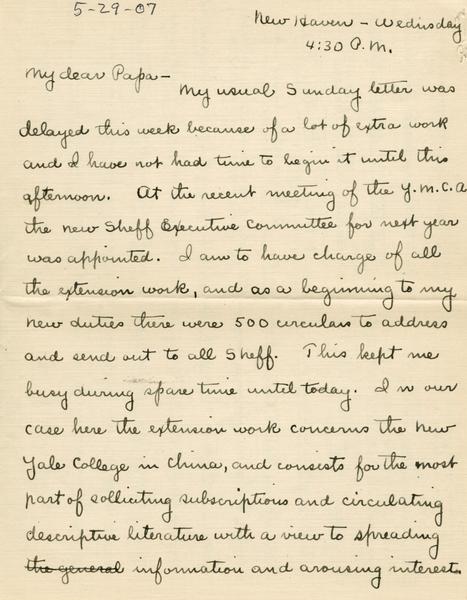 5-29-07
New Haven - Wednsday
4:30 P.M.
My dear Papa-
My usual Sunday letter was
delayed this week because of a lot of extra work
and I have not had time to begin it until this
afternoon. At the recent meeting of the Y.M.C.A
the new Sheff Executive Committee for next year
was appointed. I am to have charge of all
the extension work, and as a beginning to my
new duties there were 500 circulars to address
and send out to all Sheff. This kept me
busy during spare time until today. In our
case here the extension work concerns the new
Yale College in China, and consists for the most
part of solliciting subscriptions and circulating
descriptive literature with a view to spreading
the general information and arousing interest.